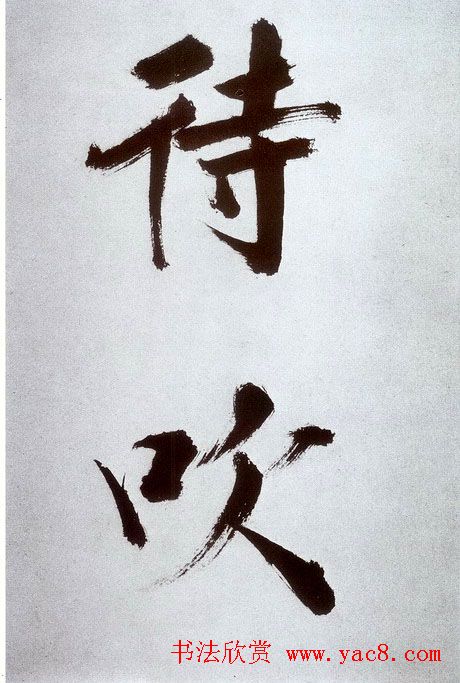 待
吹
书法欣赏 www.yac8.com